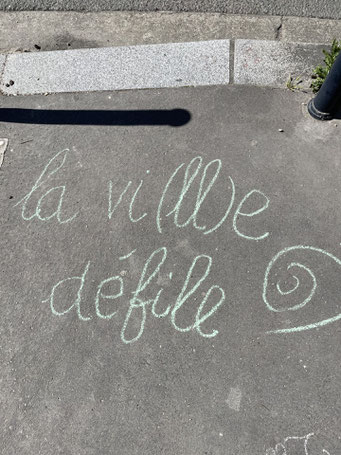 la vi(ll)e
défile